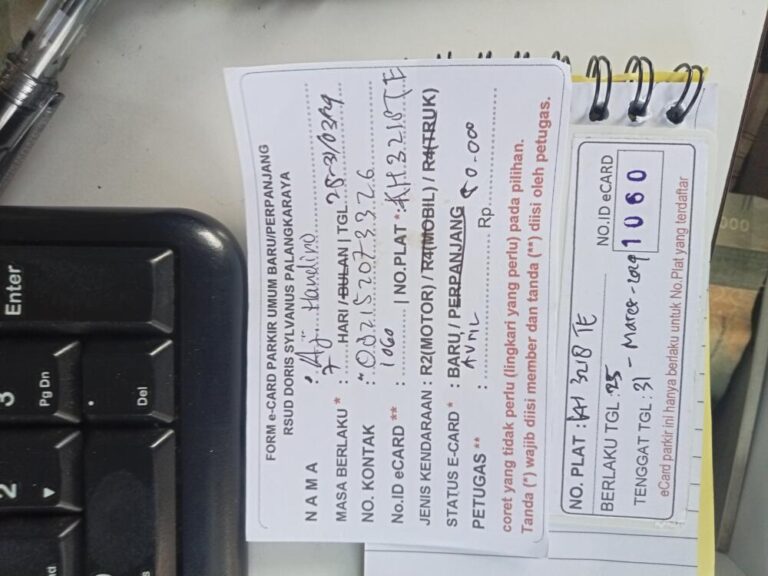 FORM e-CARD PARKIR UMUM BARU/PERPANJANG
RSUD DORIS SYLVANUS PALANGKARAYA
N A M A : Aji Handino
MASA BERLAKU * : 7 HARI / BULAN | TGL 25-31/03/19
NO. KONTAK * : 082152073326
No.ID eCARD ** : 1060 | NO.PLAT * : KH 3218 TE
JENIS KENDARAAN : R2(MOTOR) / R4(MOBIL) / R4(TRUK)
STATUS E-CARD * : BARU / PERPANJANG
PETUGAS ** : Rp 0.000
coret yang tidak perlu (lingkari yang perlu) pada pilihan.
Tanda (*) wajib diisi member dan tanda (**) diisi oleh petugas.
NO. PLAT : KH 3218 TE
BERLAKU TGL : 25
TENGGAT TGL : 31 - Maret - 2019
NO.ID eCARD
1060
eCard parkir ini hanya berlaku untuk No.Plat yang terdaftar
Enter
3
Pg Dn
.
Del
2
0
Ins
End
000